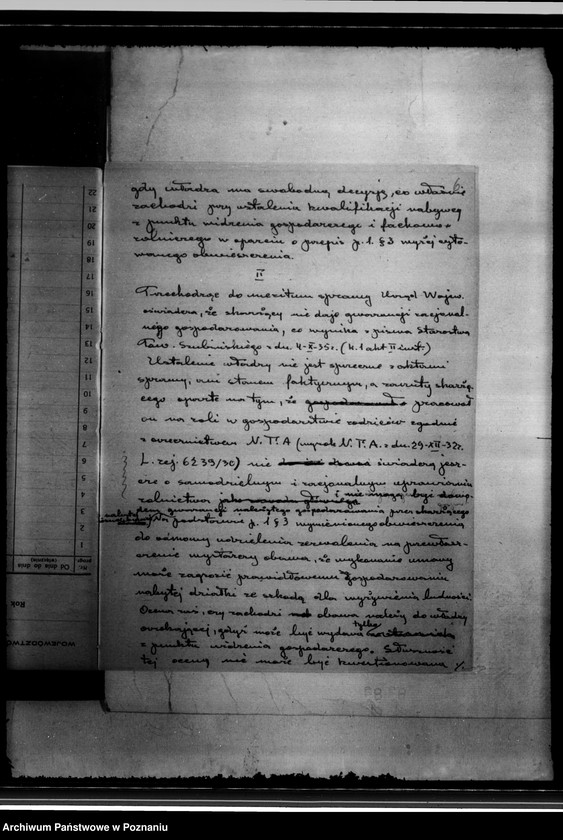 gdy władza ma swobodną decyzję, co właśnie
zachodzi przy ustaleniu kwalifikacji nabywcy
z punktu widzenia gospodarczego i fachowo-
rolniczego w oparciu o przepis p. 1. § 3 wyżej cyto-
wanego obwieszczenia.
II
Przechodząc do meritum sprawy Urząd Wojew.
oświadcza, że skarżący nie daje gwarancji racjonal-
nego gospodarowania, co wynika z pisma Starostwa
Pow. Szubińskiego z dn. 4-X-35r. (k. 1 akt II inst.)
Ustalenie władzy nie jest sprzeczne z aktami
sprawy, ani stanem faktycznym, a zarzuty skarżą-
cego oparte na tym, że pracował
on na roli w gospodarstwie rodziców zgodnie
z orzecznictwem N.T.A (wyrok N.T.A. z dn. 29-XII-32r.
L. rej. 6239/30) nie świadczą jesz-
cze o samodzielnym i racjonalnym uprawianiu
rolnictwa i nie mogą być
gwarancji należytego gospodarowania przez skarżącego
Na podstawie p. 1 § 3 wymienionego obwieszczenia
do odmowy udzielenia zezwolenia na przewłasz-
czenie wystarczy obawa, że wykonanie umowy
może zagrozić prawidłowemu gospodarowaniu
nabytej działki ze szkodą dla wyżywienia ludności
Ocena zaś, czy zachodzi obawa należy do władzy
orzekającej, gdyż może być wydana tylko
z punktu widzenia gospodarczego. Słuszność
tej oceny nie może być kwestionowana
22
21
20
19
18
17
16
15
14
13
12
11
10
9
8
7
6
5
4
3
2
1
Od dnia do dnia
Rok
WOJEWÓDZTWO
Archiwum Państwowe w Poznaniu